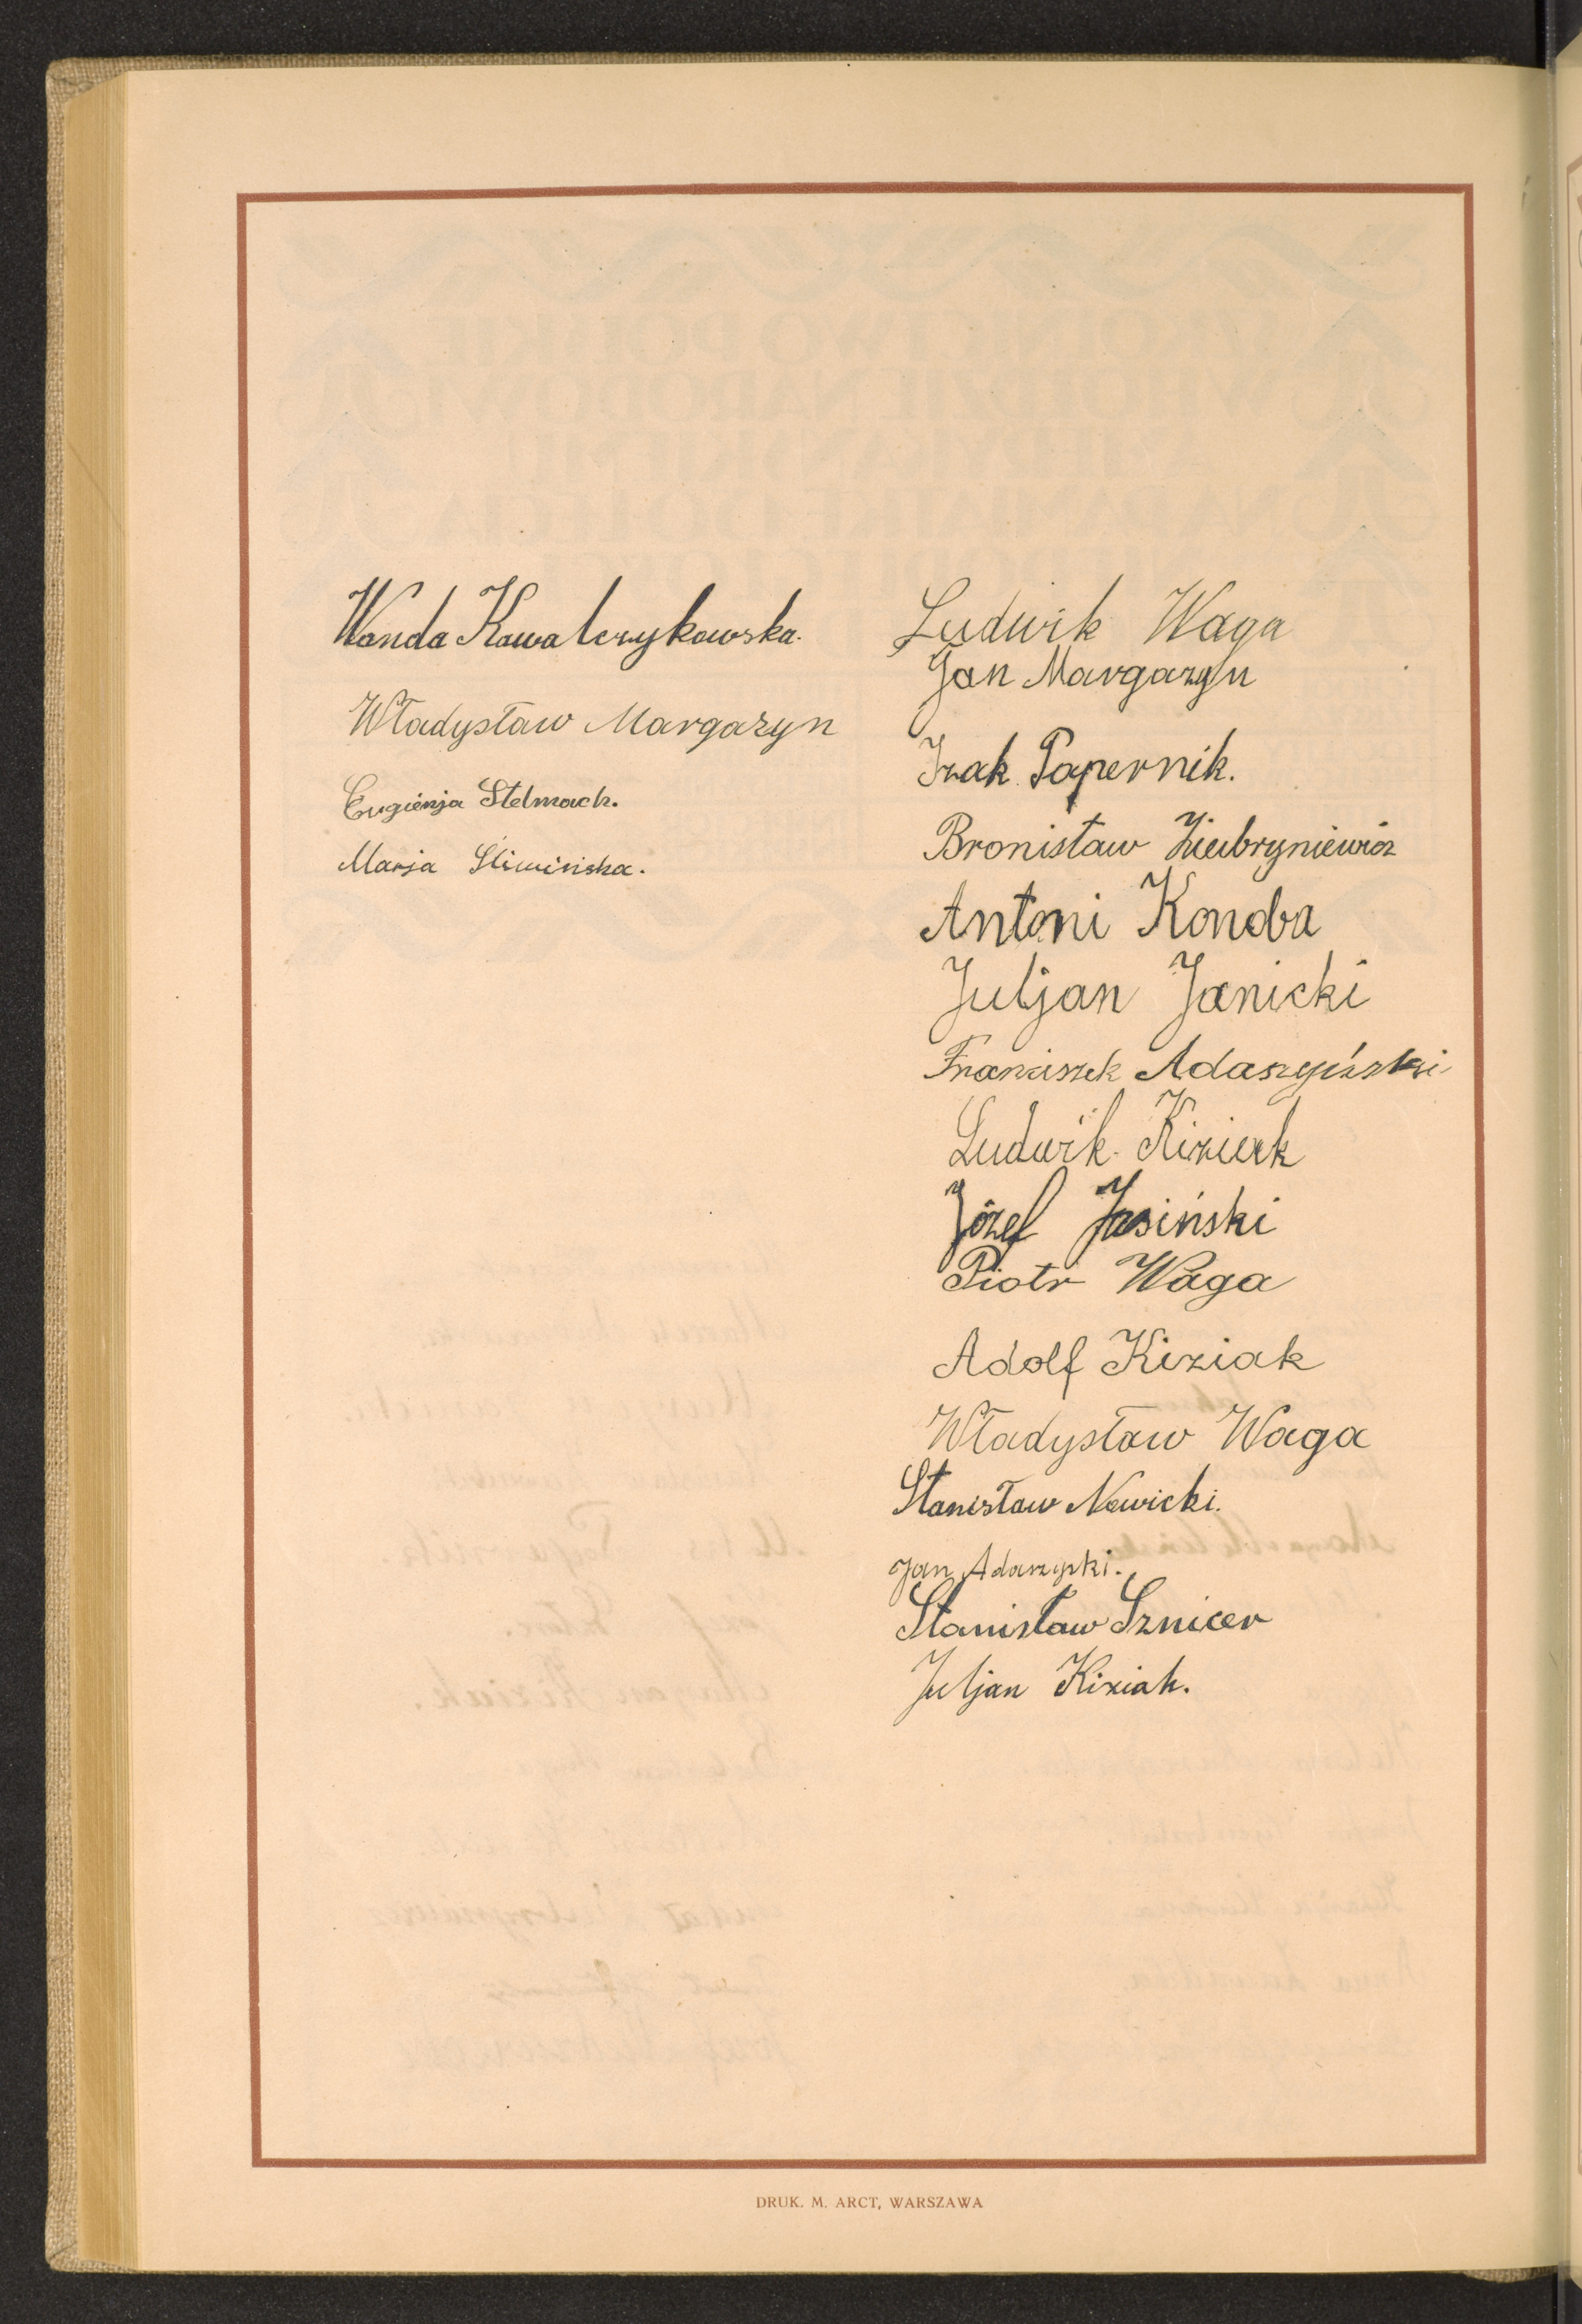 Wanda Kowalczykowska.
Władysław Margazyn
Eugienja Stelmach.
Marja Śliwińska.
Ludwik Waga
Jan Margazyn
Izak Papernik.
Bronisław Ziebryniewicz
Antoni Konoba
Juljan Janicki
Franciszek Adaszyński
Ludwik Kiziak
Józef Jasiński
Piotr Waga
Adolf Kiziak
Władysław Waga
Stanisław Nowicki.
Jan
Stanisław Sznicer
Juljan Kiziak.
DRUK. M. ARCT, WARSZAWA